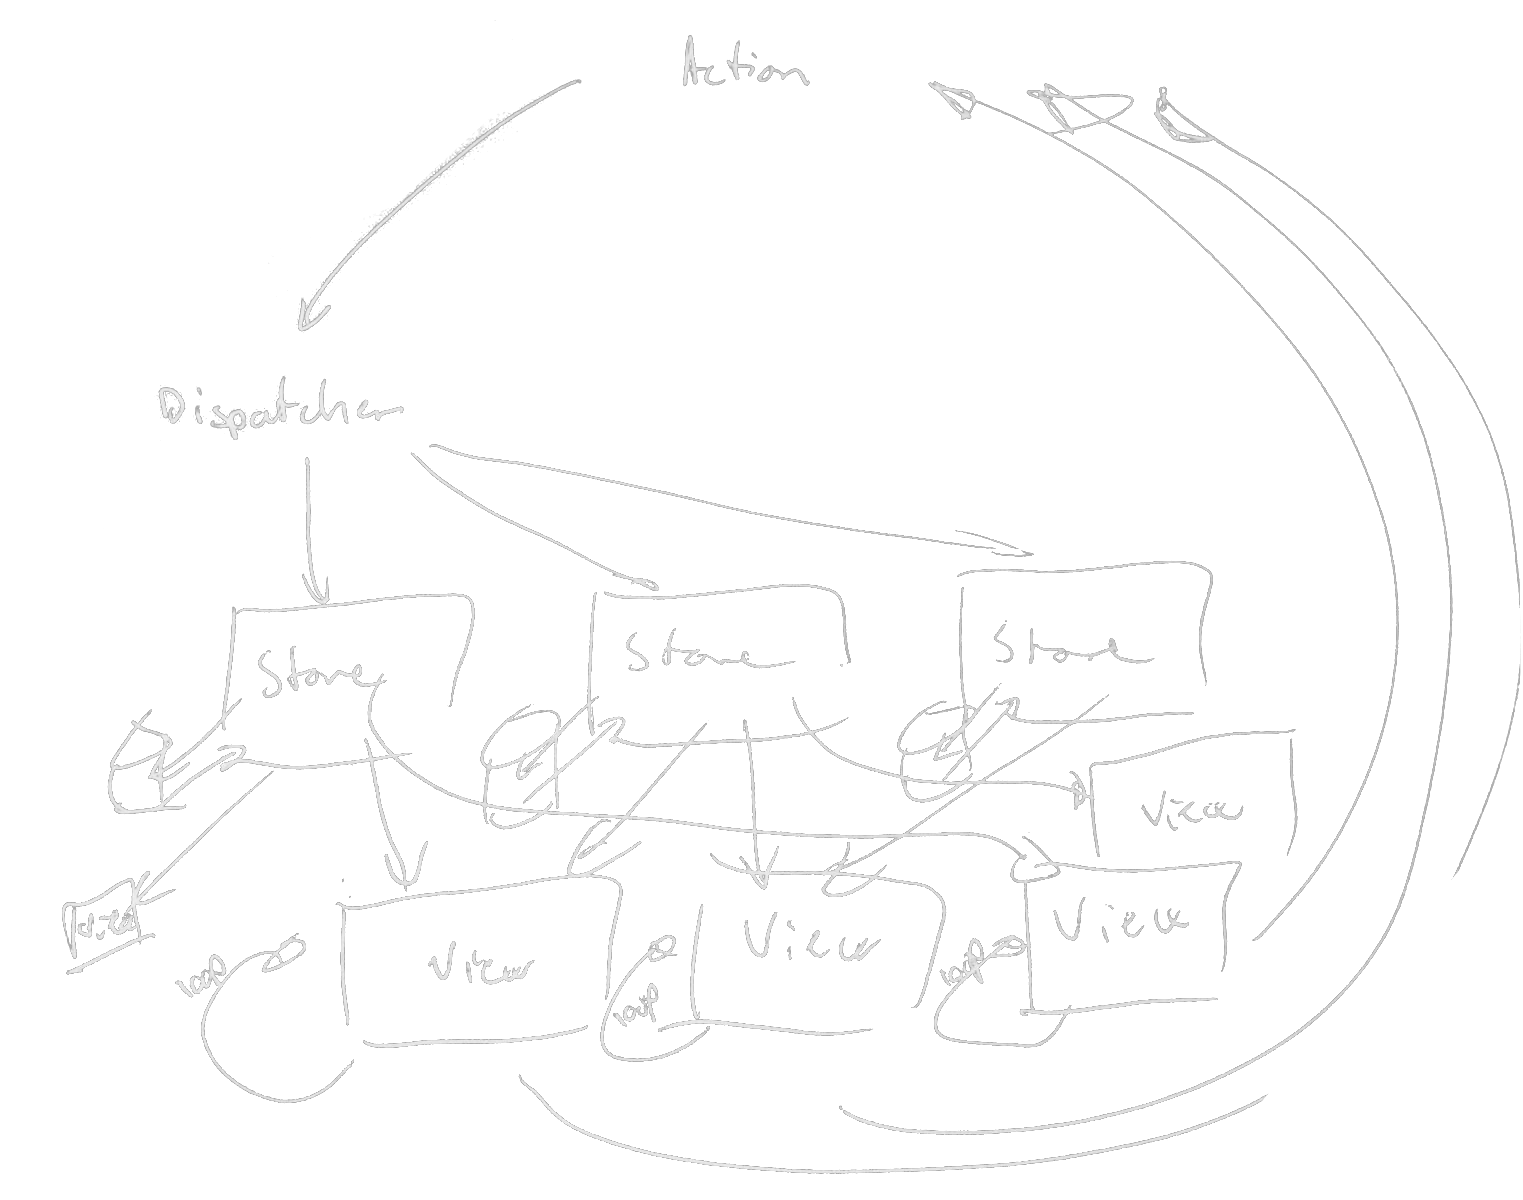 Action
Dispatcher
Store
Store
Store
View
View
View
View
View
loop
loop
loop